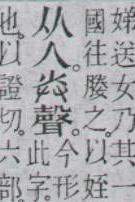 娣送女乃其一
國往媵之。以姪
从人灷聲。今形
此字。
也。以證切。六部